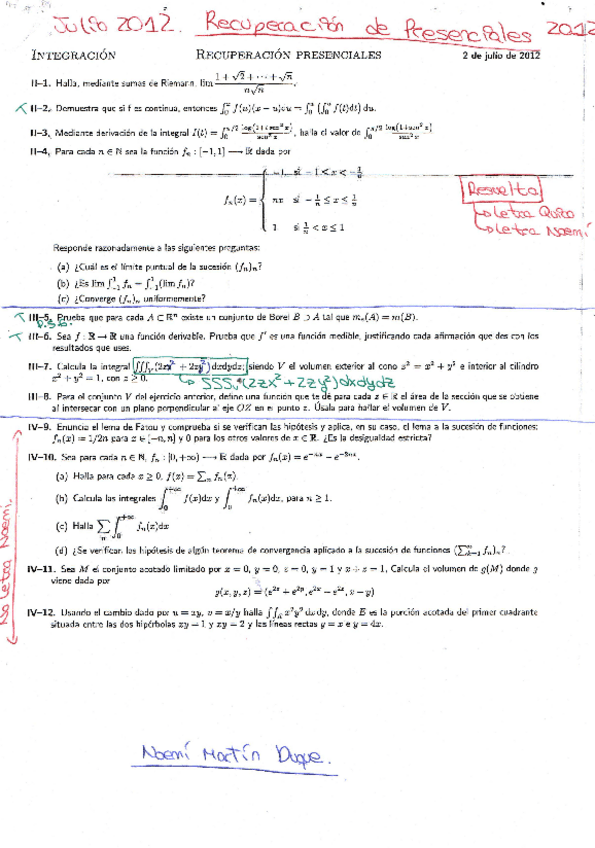 Julio 2012. Recuperación de Presenciales 2012
INTEGRACIÓN RECUPERACIÓN PRESENCIALES 2 de julio de 2012
II–1. Halla, mediante sumas de Riemann, lim (1 + √2 + ··· + √n)/(n√n).
II–2. Demuestra que si f es continua, entonces ∫₀ˣ f(u)(x − u)du = ∫₀ˣ (∫₀ᵘ f(t)dt) du.
II–3. Mediante derivación de la integral I(t) = ∫₀^{π/2} log(1+t sen² x)/sen² x, halla el valor de ∫₀^{π/2} log(1+sen² x)/sen² x
II–4. Para cada n ∈ ℕ sea la función fₙ : [−1, 1] ⟶ ℝ dada por
fₙ(x) = { −1 si −1 ≤ x < −1/n
nx si −1/n ≤ x ≤ 1/n
1 si 1/n < x ≤ 1
Resuelto
Letra Quiro
Letra Noemí
Responde razonadamente a las siguientes preguntas:
(a) ¿Cuál es el límite puntual de la sucesión (fₙ)ₙ?
(b) ¿Es lim ∫₋₁¹ fₙ = ∫₋₁¹ (lim fₙ)?
(c) ¿Converge (fₙ)ₙ uniformemente?
III–5. Prueba que para cada A ⊂ ℝⁿ existe un conjunto de Borel B ⊃ A tal que mₑ(A) = m(B).
III–6. Sea f : ℝ → ℝ una función derivable. Prueba que f′ es una función medible, justificando cada afirmación que des con los
resultados que uses.
III–7. Calcula la integral ∭ᵥ(2zx² + 2zy²)dxdydz; siendo V el volumen exterior al cono z² = x² + y² e interior al cilindro
x² + y² = 1, con z ≥ 0.
SSSᵥ(2zx² + 2zy²)dxdydz
III–8. Para el conjunto V del ejercicio anterior, define una función que te dé para cada z ∈ ℝ el área de la sección que se obtiene
al intersecar con un plano perpendicular al eje OZ en el punto z. Úsala para hallar el volumen de V.
IV–9. Enuncia el lema de Fatou y comprueba si se verifican las hipótesis y aplica, en su caso, el lema a la sucesión de funciones:
fₙ(x) = 1/2n para x ∈ [−n, n] y 0 para los otros valores de x ∈ ℝ. ¿Es la desigualdad estricta?
IV–10. Sea para cada n ∈ ℕ, fₙ : [0, +∞) ⟶ ℝ dada por fₙ(x) = e⁻ⁿˣ −
(a) Halla para cada x ≥ 0, f(x) = ∑ₙ fₙ(x).
(b) Calcula las integrales ∫₀^{+∞} f(x)dx y ∫₀^{+∞} fₙ(x)dx, para n ≥ 1.
(c) Halla ∑ₙ ∫₀^{+∞} fₙ(x)dx
(d) ¿Se verifican las hipótesis de algún teorema de convergencia aplicado a la sucesión de funciones
IV–11. Sea M el conjunto acotado limitado por x = 0, y = 0, z = 0, y = 1 y x + z = 1. Calcula el volumen de g(M) donde g
viene dada por
g(x, y, z) = (e²ᶻ + e²ʸ, e²ˣ − e²ᶻ, x − y)
IV–12. Usando el cambio dado por u = xy, v = x/y halla ∬ x²y² dxdy, donde es la porción acotada del primer cuadrante
situada entre las dos hipérbolas xy = 1 y xy = 2 y las líneas rectas y = x e y = 4x.
No letra Noemí.
Noemí Martín Duque.